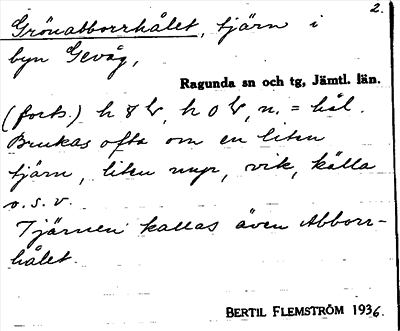 2.
Grönabborrhålet, tjärn i
byn Gevåg,
Ragunda sn och tg, Jämtl. län.
(forts.) n. = hål.
Brukas ofta om en liten
tjärn, liten myr, vik, källa
o.s.v.
Tjärnen kallas även Abborr-
hålet.
BERTIL FLEMSTRÖM 1936.